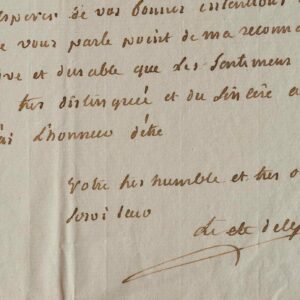 esperer de vos bonnes intentions
vous parle point de ma reconna
ve et durable que les sentimens
tres distinguée et du sincere a
ai l'honneur d'être
Votre tres humble et tres o
Servi teur